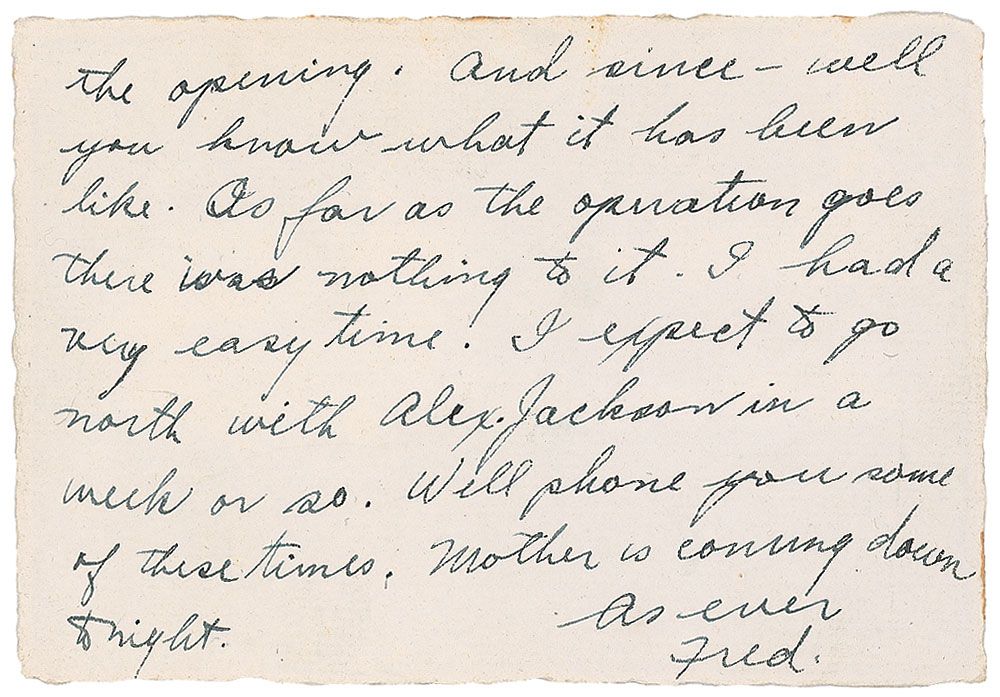 the opening. And since – well
you know what it has been
like. As far as the operation goes
there was nothing to it. I had a
very easy time. I expect to go
north with Alex. Jackson in a
week or so. Will phone you some
of these times. Mother is coming down
tonight.
As ever
Fred.